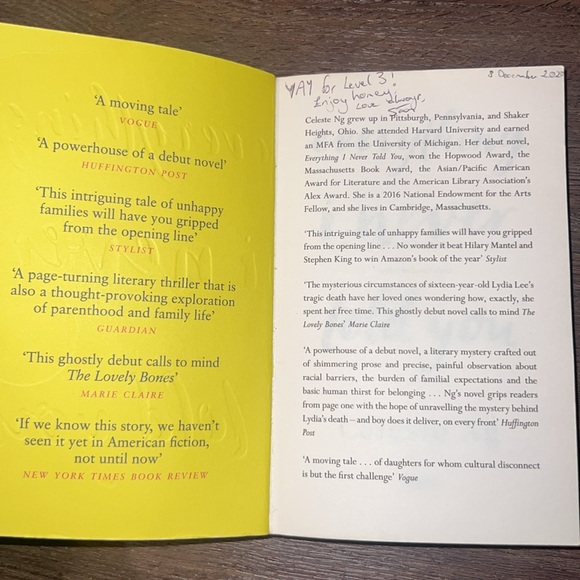 ‘A moving tale’
VOGUE
‘A powerhouse of a debut novel’
HUFFINGTON POST
‘This intriguing tale of unhappy
families will have you gripped
from the opening line’
STYLIST
‘A page-turning literary thriller that is
also a thought-provoking exploration
of parenthood and family life’
GUARDIAN
‘This ghostly debut calls to mind
The Lovely Bones’
MARIE CLAIRE
‘If we know this story, we haven’t
seen it yet in American fiction,
not until now’
NEW YORK TIMES BOOK REVIEW
8 December
YAY for Level 3!
Enjoy honey,
Love always,
Celeste Ng grew up in Pittsburgh, Pennsylvania, and Shaker
Heights, Ohio. She attended Harvard University and earned
an MFA from the University of Michigan. Her debut novel,
Everything I Never Told You, won the Hopwood Award, the
Massachusetts Book Award, the Asian/Pacific American
Award for Literature and the American Library Association’s
Alex Award. She is a 2016 National Endowment for the Arts
Fellow, and she lives in Cambridge, Massachusetts.
‘This intriguing tale of unhappy families will have you gripped
from the opening line . . . No wonder it beat Hilary Mantel and
Stephen King to win Amazon’s book of the year’ Stylist
‘The mysterious circumstances of sixteen-year-old Lydia Lee’s
tragic death have her loved ones wondering how, exactly, she
spent her free time. This ghostly debut novel calls to mind The
Lovely Bones’ Marie Claire
‘A powerhouse of a debut novel, a literary mystery crafted out
of shimmering prose and precise, painful observation about
racial barriers, the burden of familial expectations and the
basic human thirst for belonging . . . Ng’s novel grips readers
from page one with the hope of unravelling the mystery behind
Lydia’s death – and boy does it deliver, on every front’ Huffington
Post
‘A moving tale . . . of daughters for whom cultural disconnect
is but the first challenge’ Vogue